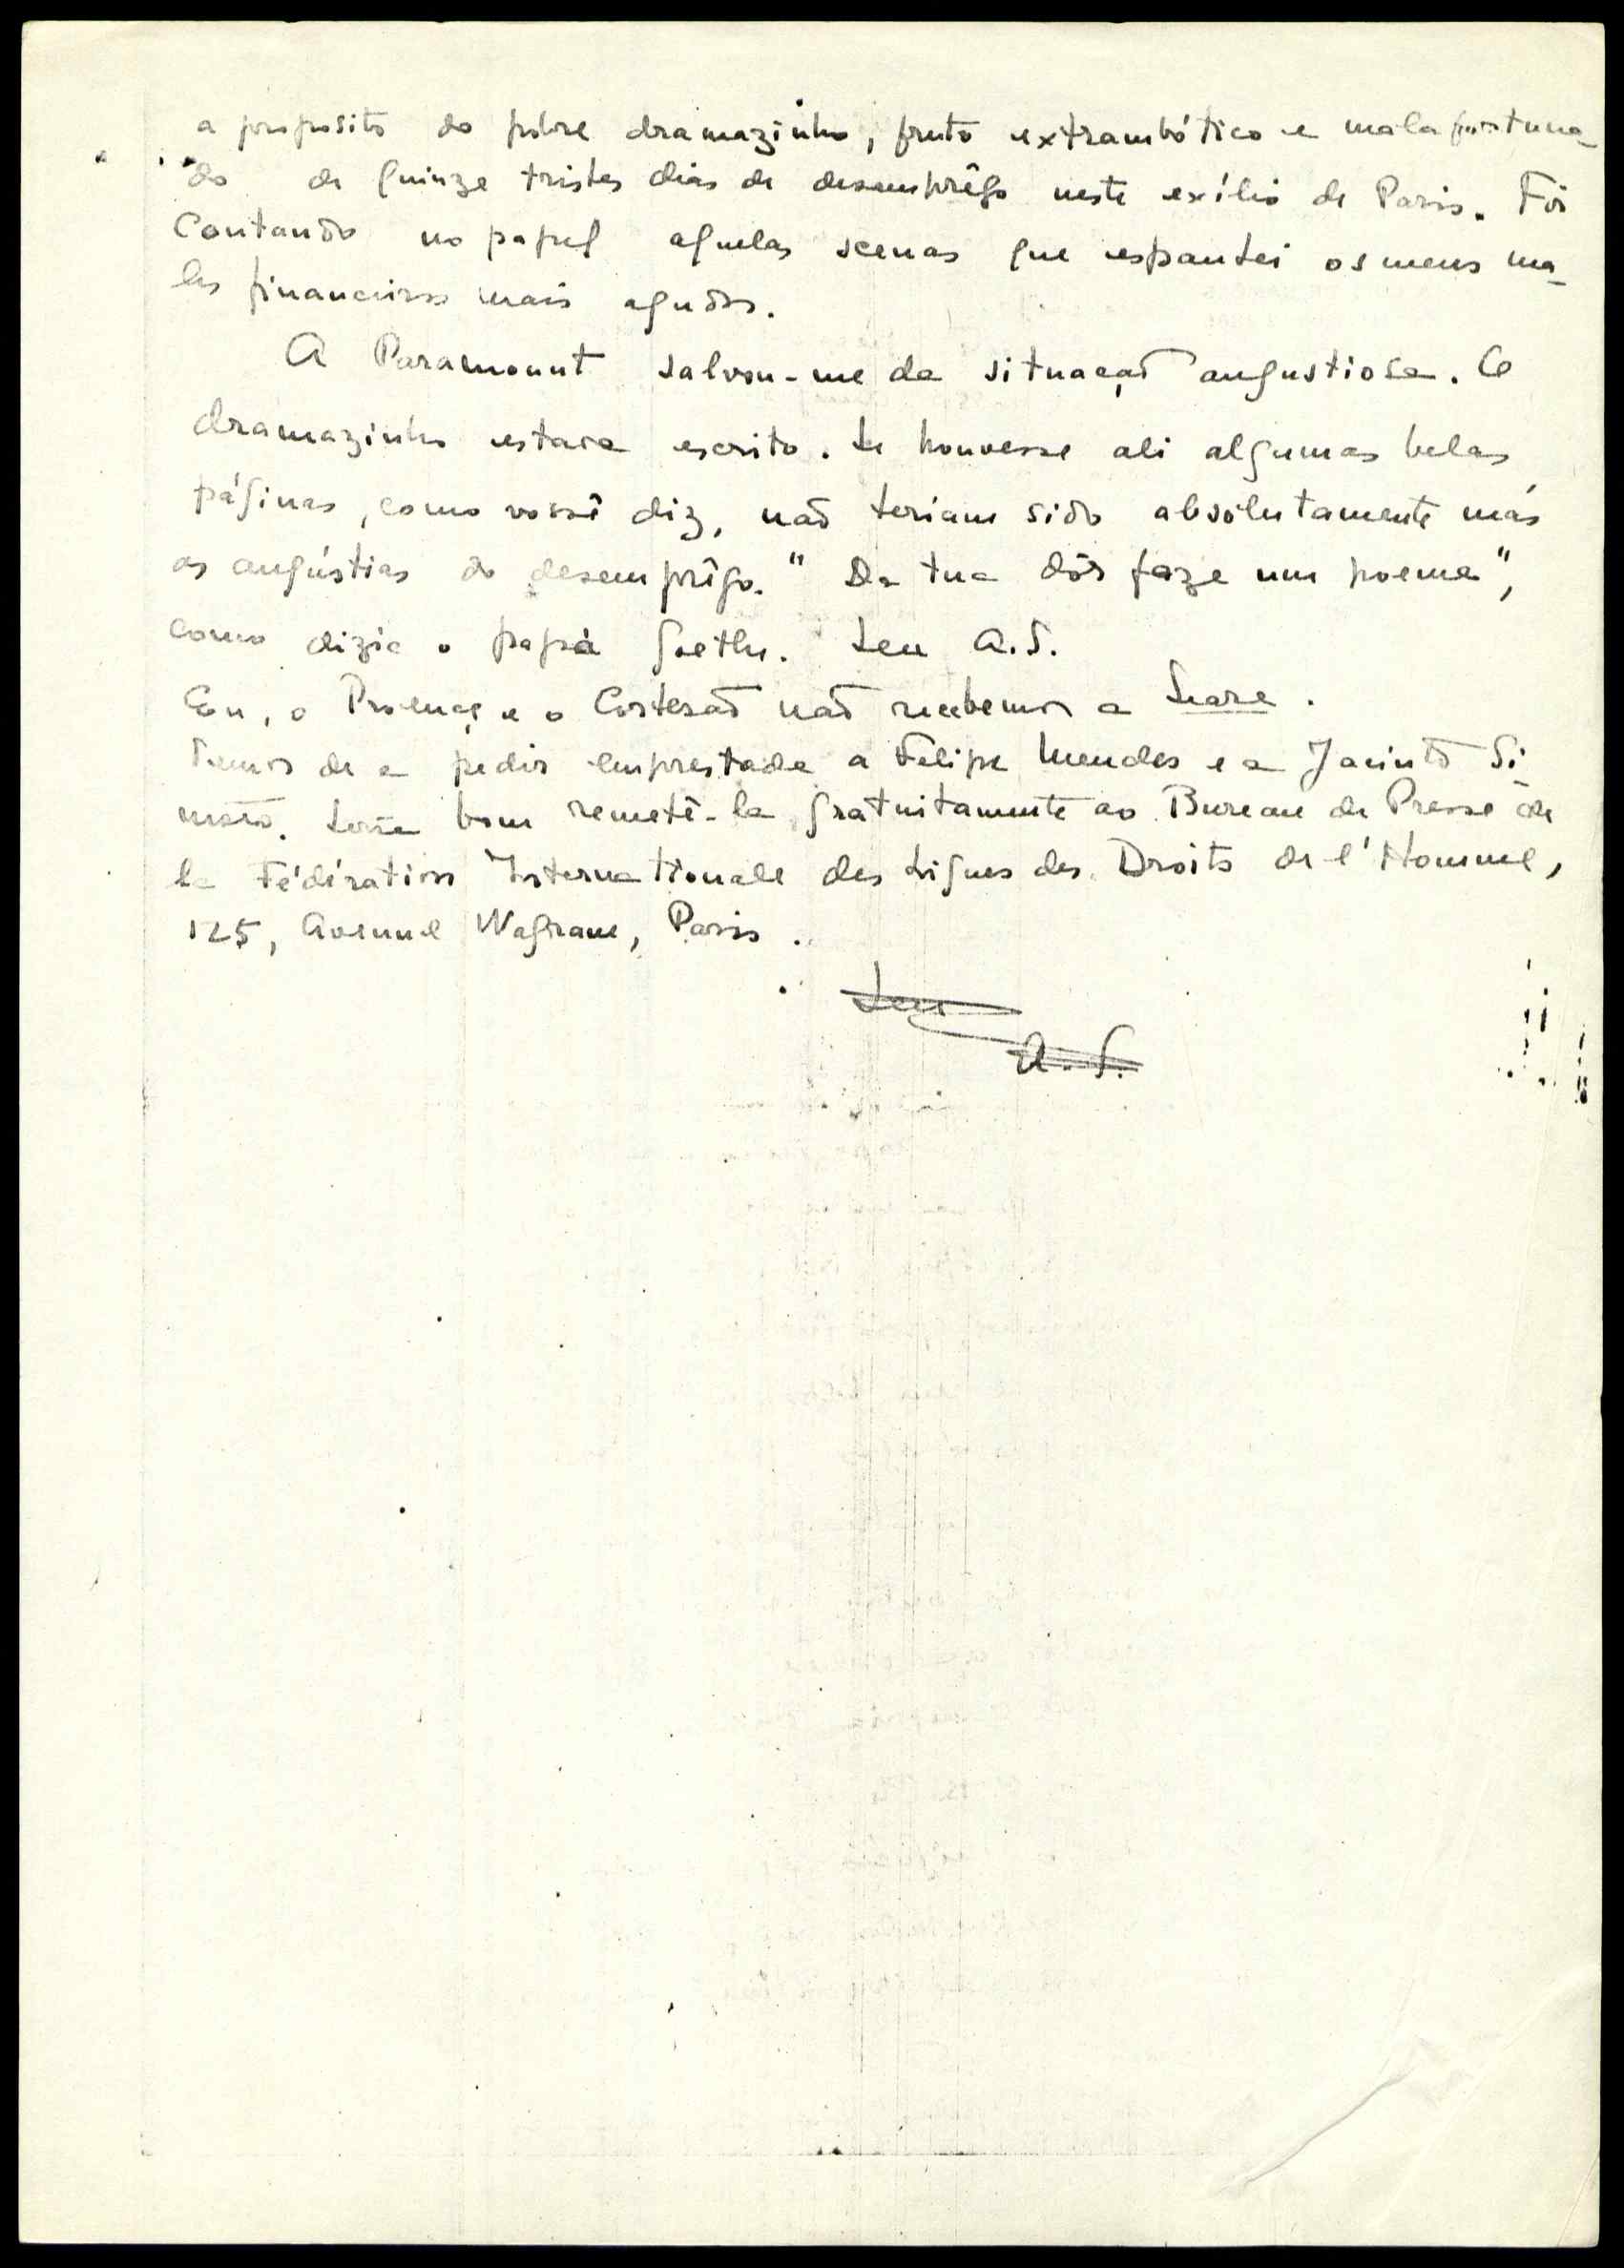 a proposito do pobre dramazinho, fruto extrambótico e malafortuna-
do de quinze tristes dias de desemprêgo neste exílio de Paris. Foi
contando no papel aquelas scenas que espantei os meus ma-
les financeiros mais agudos.
A Paramount salvou-me da situação angustiosa. O
dramazinho estava escrito. Se houvesse ali algumas belas
páginas, como vossê diz, não teriam sido absolutamente más
as angústias do desemprêgo. "Da tua dôr faze um poema",
como dizia o papá Goethe. Seu A.S.
Eu, o Proença e o Cortesão não recebemos a Seara.
Temos de a pedir emprestada a Felipe Mendes e a Jacinto Si-
mões. Seria bom remetê-la gratuitamente ao Bureau de Presse de
la Fédération Internationale des Ligues des Droits de l'Homme,
125, Avenue Wagram, Paris.
Seu
A.S.